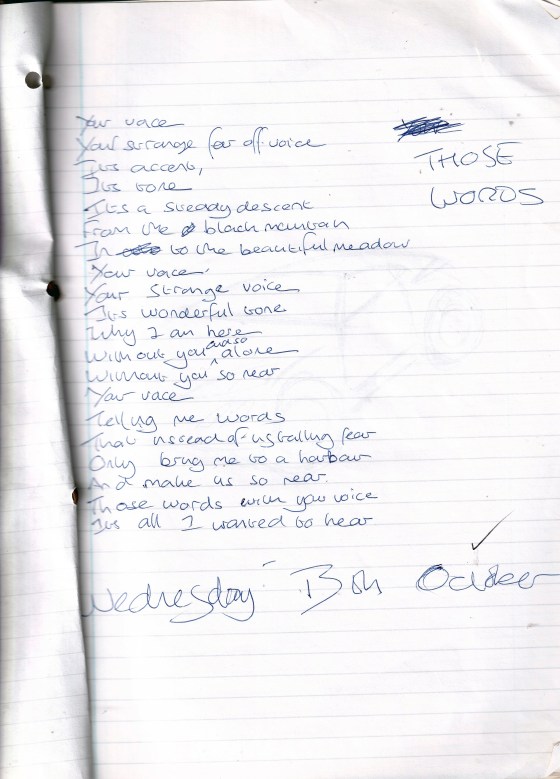 THOSE
WORDS
Your voice
Your strange far off voice
Its accent,
Its tone
Its a steady descent
From the black mountain
In to the beautiful meadow
Your voice
Your strange voice
Its wonderful tone
Why I am here
Without you and so alone
Without you so near
Your voice
Telling me words
That instead of installing fear
Only bring me to a harbour
And make us so near
Those words with your voice
Its all I wanted to hear
Wednesday 13th October